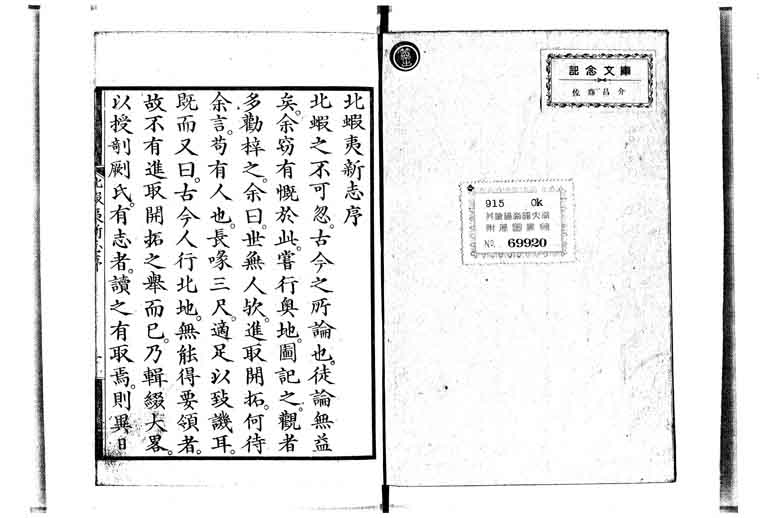 記念文庫
佐藤昌介
915 Ok
No. 69920
北蝦夷新志序
北蝦之不可忽。古今之所論也。徒論無益
矣。余窃有慨於此。嘗行奥地。圖記之。觀者
多勸梓之。余曰。世無人欤。進取開拓。何待
余言。苟有人也。長喙三尺。適足以致譏耳。
既而又曰。古今人行北地。無能得要領者。
故不有進取開拓之舉而已。乃輯綴大畧。
以授剞劂氏。有志者。讀之有取焉。則異日